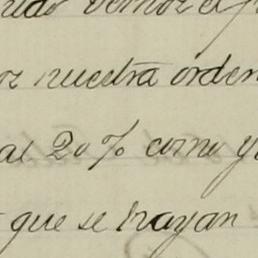 vernos el
nuestra orden
al 20% como y
que se trayan